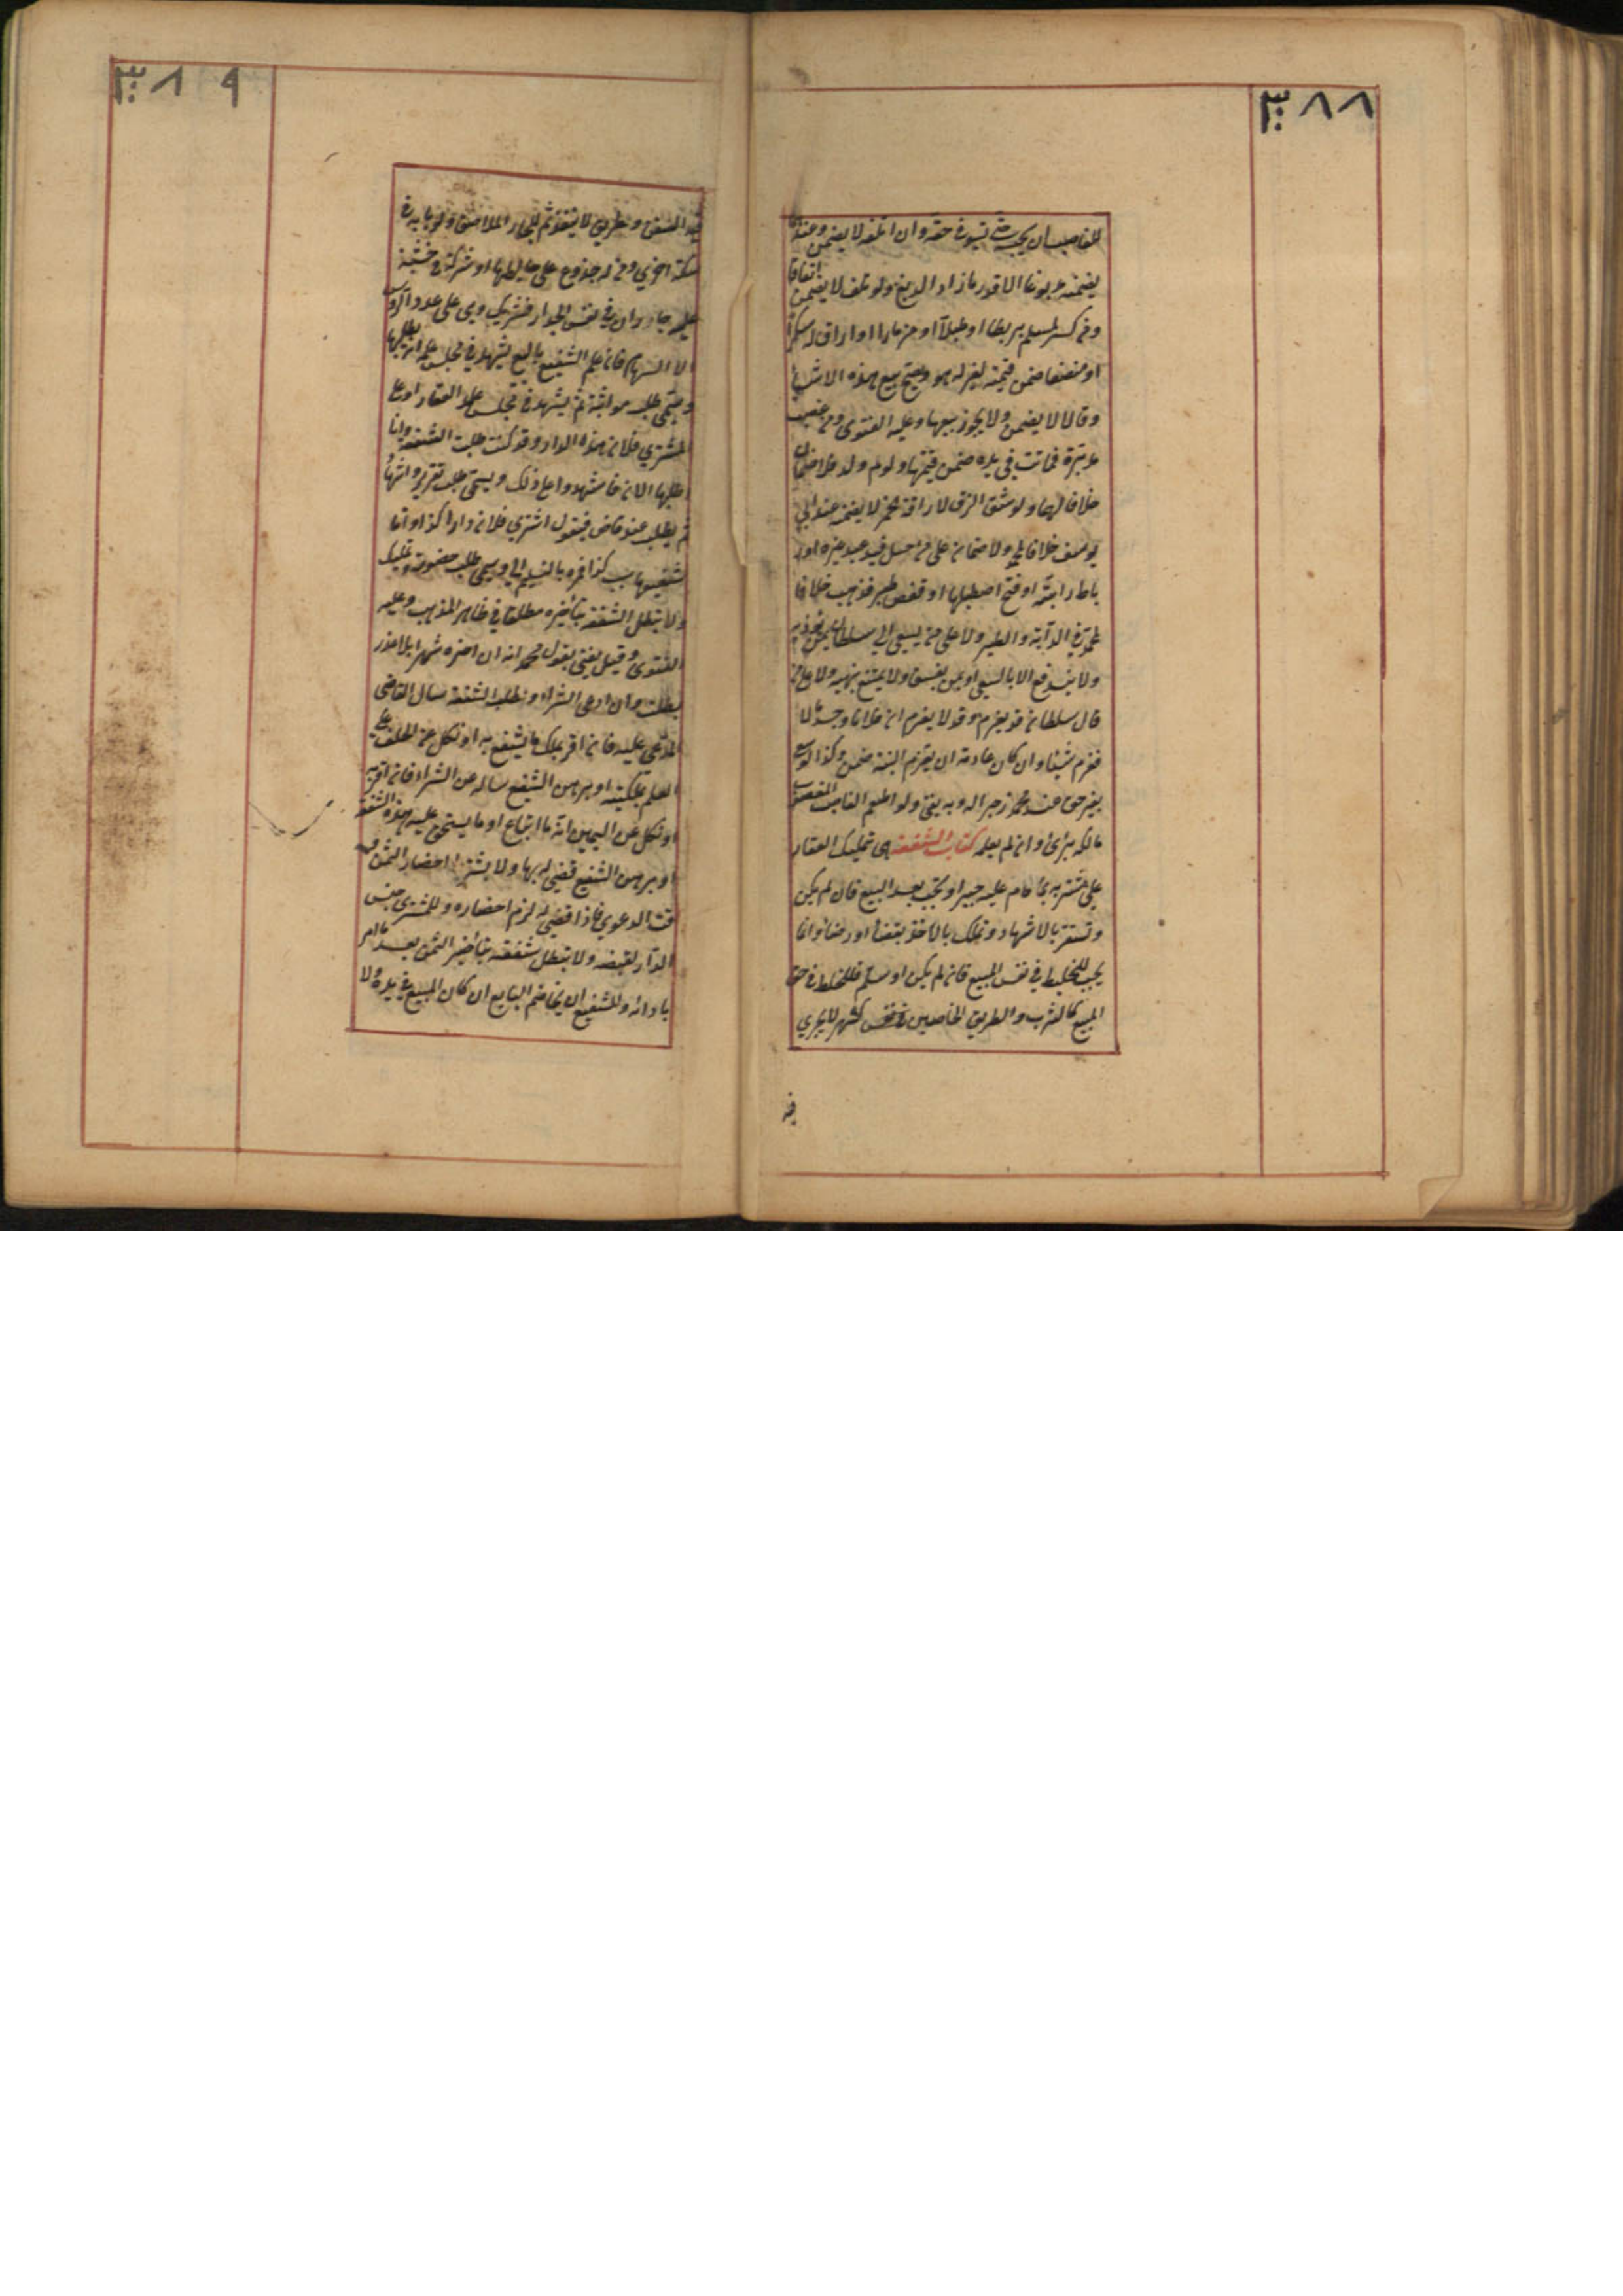 ٣٨٨
للغاصب ان يحبسه حتى يستوفي حقه وان اتلفه لا يضمن وعندهما
يضمنه مدبوغا الا قدر ما زاد الدبغ ولو تلف لا يضمن اتفاقا
ومن كسر لمسلم بربطا او طبلا او مزمارا او اراق له سكرا
او منصفا ضمن قيمته لغير لهو ويصح بيع هذه الاشياء
وقالا لا يضمن ولا يجوز بيعها وعليه الفتوى ومن غصب
مدبرة فماتت في يده ضمن قيمتها ولو ام ولد فلا ضمان
خلافا لهما ولو شق الزق لاراقة خمر لا يضمن عند ابي
يوسف خلافا لمحمد ولا ضمان على من حل قيد عبد غيره او
رباط دابته او فتح اصطبلها او قفص طير فذهب خلافا
لمحمد في الدابة والطير ولا على من يسعى الى سلطان بمن يؤذيه
ولا يندفع الا بالسعي او بمن يفسق ولا يمتنع بنهيه ولا على من
قال لسلطان قد يغرم وقد لا يغرم ان فلانا وجد مالا
فغرم شيئا وان كان عادته ان يغرم البتة ضمن وكذا لو سعى
بغير حق عند محمد زجرا له وبه يفتى ولو اطعم الغاصب المغصوب
مالكه برئ وان لم يعلمه كتاب الشفعة هي تمليك العقار
على مشتريه بما قام عليه جبرا وتجب بعد البيع فان لم يكن
وتستقر بالاشهاد وتملك بالاخذ بقضاء او رضا وانما
تجب للخليط في نفس المبيع فان لم يكن او سلم فللخليط في حق
المبيع كالشرب والطريق الخاصين كنهر لا يجري
فيه
٣٨٩
فيه السفن وطريق لا ينفذ ثم للجار الملاصق ولو بابه في
سكة اخرى ومن له جذوع على حايطها او شركة في خشبة
عليه جار وان في نفس الجدار فشريك وهي على عدد الرؤس
لا السهام فان علم الشفيع بالبيع يشهد في مجلس علمه انه يطلبها
ويسمى طلب مواثبة ثم يشهد في مجلس على العقار او على
المشتري فلان هذه الدار وقد كنت طلبت الشفعة وانا
اطلبها الان فاشهدوا على ذلك ويسمى طلب تقرير واشهاد
ثم يطلب عند قاض فيقول اشترى فلان دارا كذا وانا
شفيعها بسبب كذا فمره بالتسليم الي ويسمى طلب خصومة وتمليك
ولا تبطل الشفعة بتأخيره مطلقا في ظاهر المذهب وعليه
الفتوى وقيل يفتى بقول محمد انه ان اخره شهرا بلا عذر
بطلت وان ادعى الشراء وطلب الشفعة سأل القاضي
المدعى عليه فان اقر بملك ما يشفع به او نكل عن الحلف على
العلم بملكيته او برهن الشفيع سأله عن الشراء فان اقر به
او نكل عن اليمين انه ما ابتاع او ما يستحق عليه هذه الشفعة
او برهن الشفيع قضي له بها ولا يشترط احضار الثمن
وقت الدعوى فاذا قضي له لزم احضاره وللمشتري حبس
الدار لقبضه ولا تبطل شفعته بتأخير الثمن بعد ما امر
بادائه وللشفيع ان يخاصم البايع ان كان المبيع في يده ولا